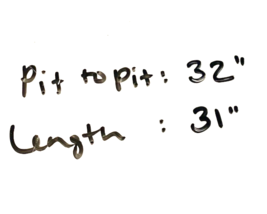 Pit to pit: 32"
Length : 31"